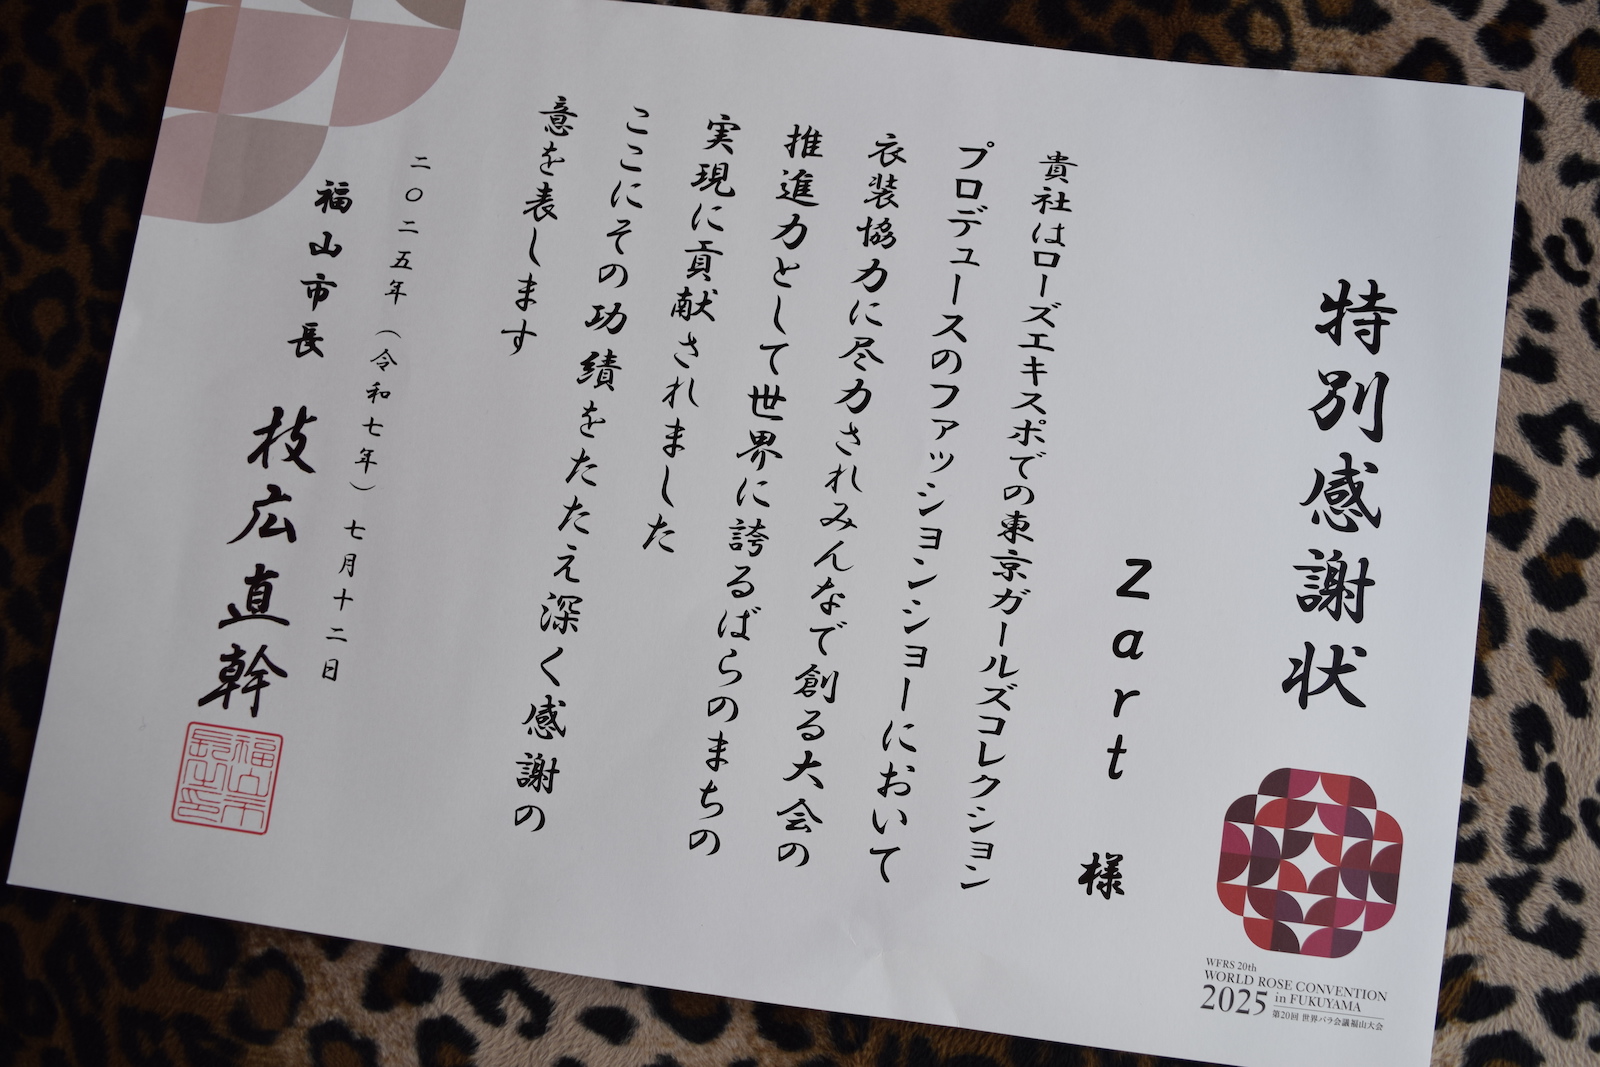 特別感謝状
zart 様
貴社はローズエキスポでの東京ガールズコレクション
プロデュースのファッションショーにおいて
衣装協力に尽力されみんなで創る大会の
推進力として世界に誇るばらのまちの
実現に貢献されました
ここにその功績をたたえ深く感謝の
意を表します
二〇二五年（令和七年）七月十二日
福山市長 枝広直幹
福山市
長之印
WFRS 20th
WORLD ROSE CONVENTION
2025 in FUKUYAMA
第20回 世界バラ会議福山大会